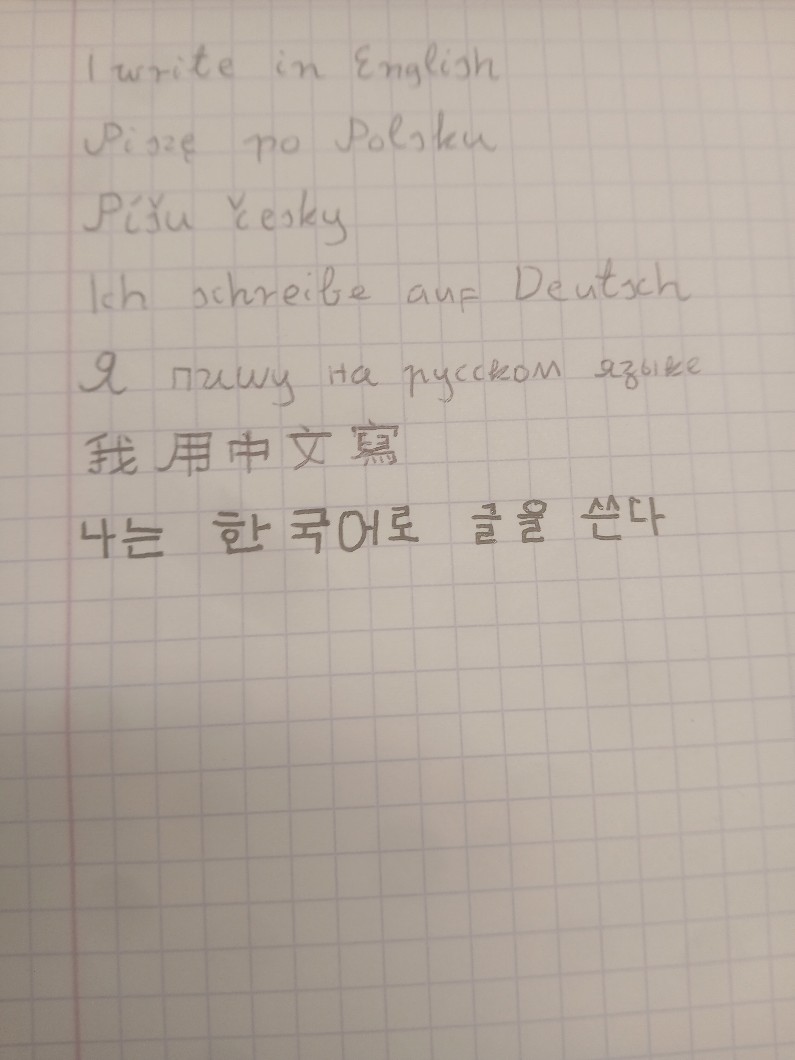 I write in English
Piszę po Polsku
Píšu česky
Ich schreibe auf Deutsch
Я пишу на русском языке
我用中文寫
나는 한국어로 글을 쓴다